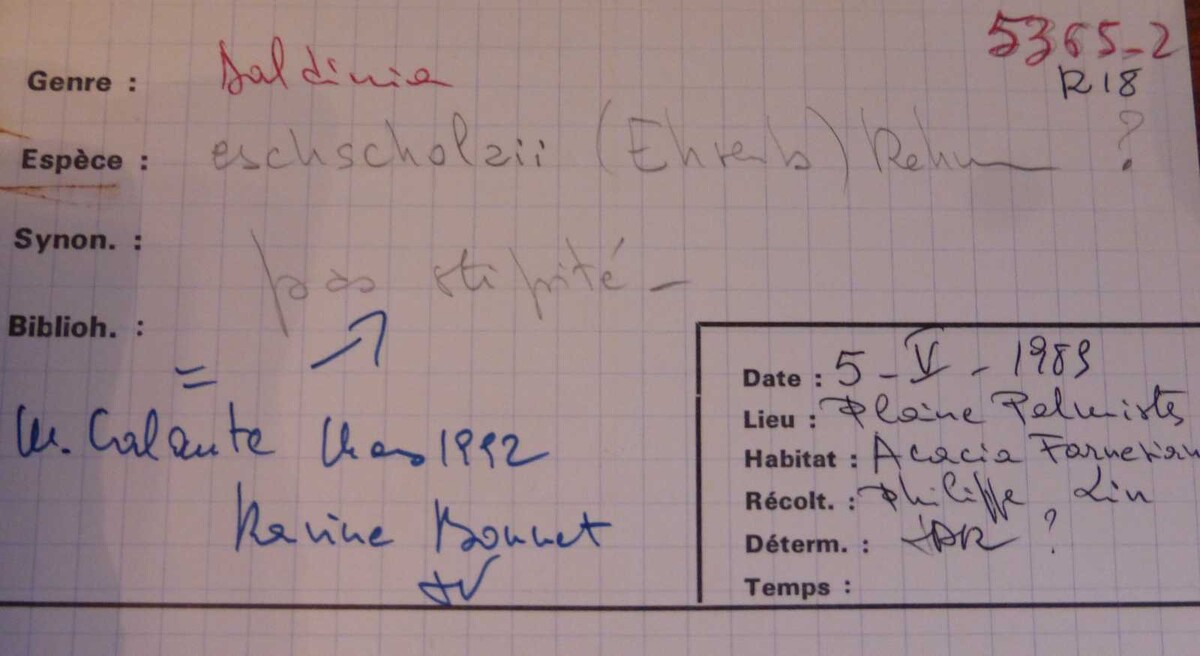 5365-2
R 18
Genre : Daldinia
Espèce : eschscholzii (Ehrenb) Rehm ?
Synon. :
pas stipité -
Biblioh. :
=
Mars 1992
Ravine Bonnet
Date : 5 - V - 1989
Lieu : Plaine Palmistes
Habitat : Acacia Farnesian
Récolt. : Philippe
Déterm. : ?
Temps :